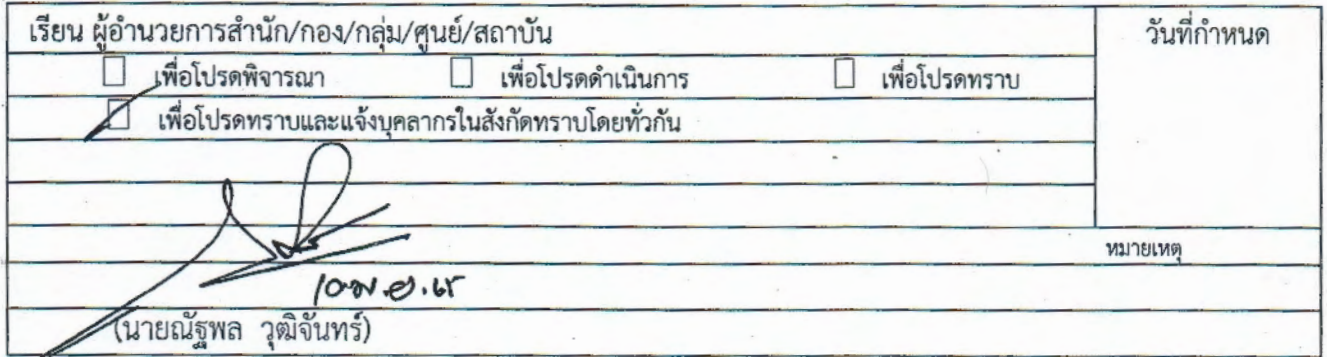 เรียน ผู้อำนวยการสำนัก/กอง/กลุ่ม/ศูนย์/สถาบัน วันที่กำหนด
☐ เพื่อโปรดพิจารณา ☐ เพื่อโปรดดำเนินการ ☐ เพื่อโปรดทราบ
☐ เพื่อโปรดทราบและแจ้งบุคลากรในสังกัดทราบโดยทั่วกัน
หมายเหตุ
(นายณัฐพล วุฒิจันทร์)